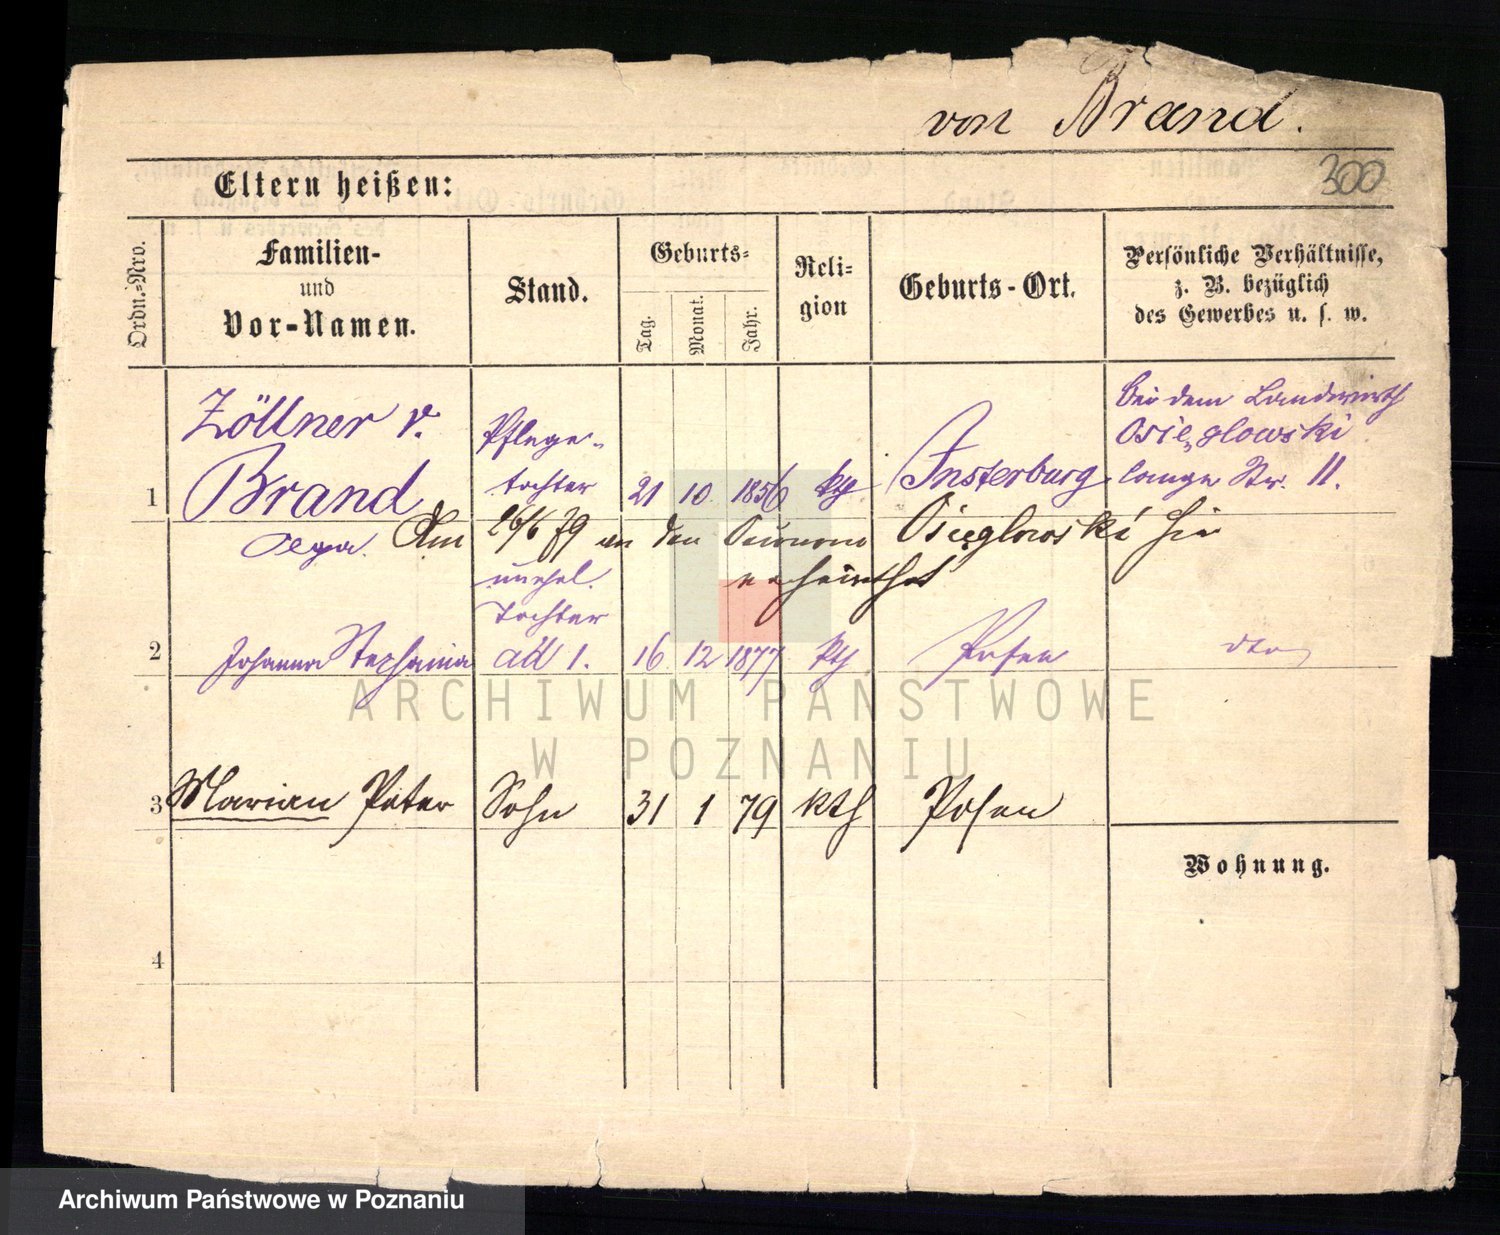 von Brand.
300
Eltern heißen:
Ordn.=Nro.
Familien-
und
Vor-Namen.
Stand.
Geburts=
Tag.
Monat.
Jahr.
Reli=
gion
Geburts-Ort.
Persönliche Verhältnisse,
z. B. bezüglich
des Gewerbes u. s. w.
1
Zöllner v.
Brand
Olga.
Pflege-
tochter
21 10 1856 kth
Insterburg
bei dem Landwirth
Osięglowski
lange Str. 11.
Am 26/6 79 an den Oeconom Osięglowski hier
verheirathet
2
Johanna Stephania
unehel.
Tochter
ad 1.
16 12 1877 kth
Posen
dto
3 Marian Peter Sohn 31 1 79 kth Posen
Wohnung.
4
ARCHIWUM PAŃSTWOWE
W POZNANIU
Archiwum Państwowe w Poznaniu